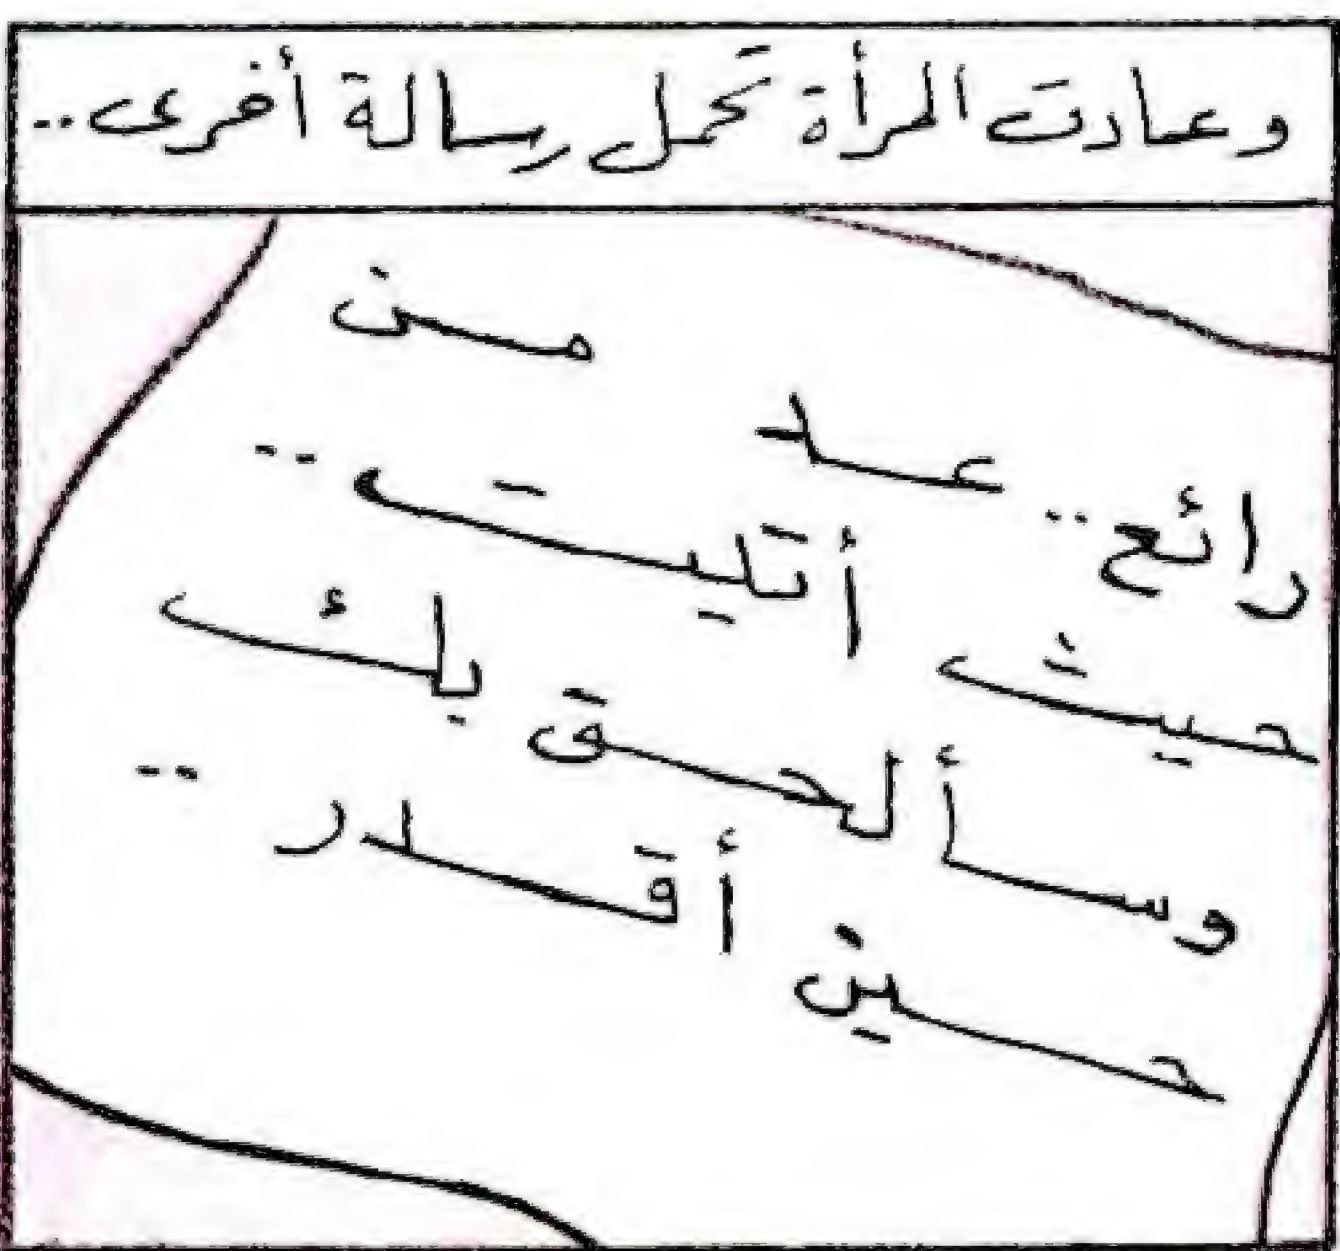 وعادت المرأة تحمل رسالة أخرى..
رائع.. عد من
حيث أتليت..
وسألحق بك
حين أقدر..